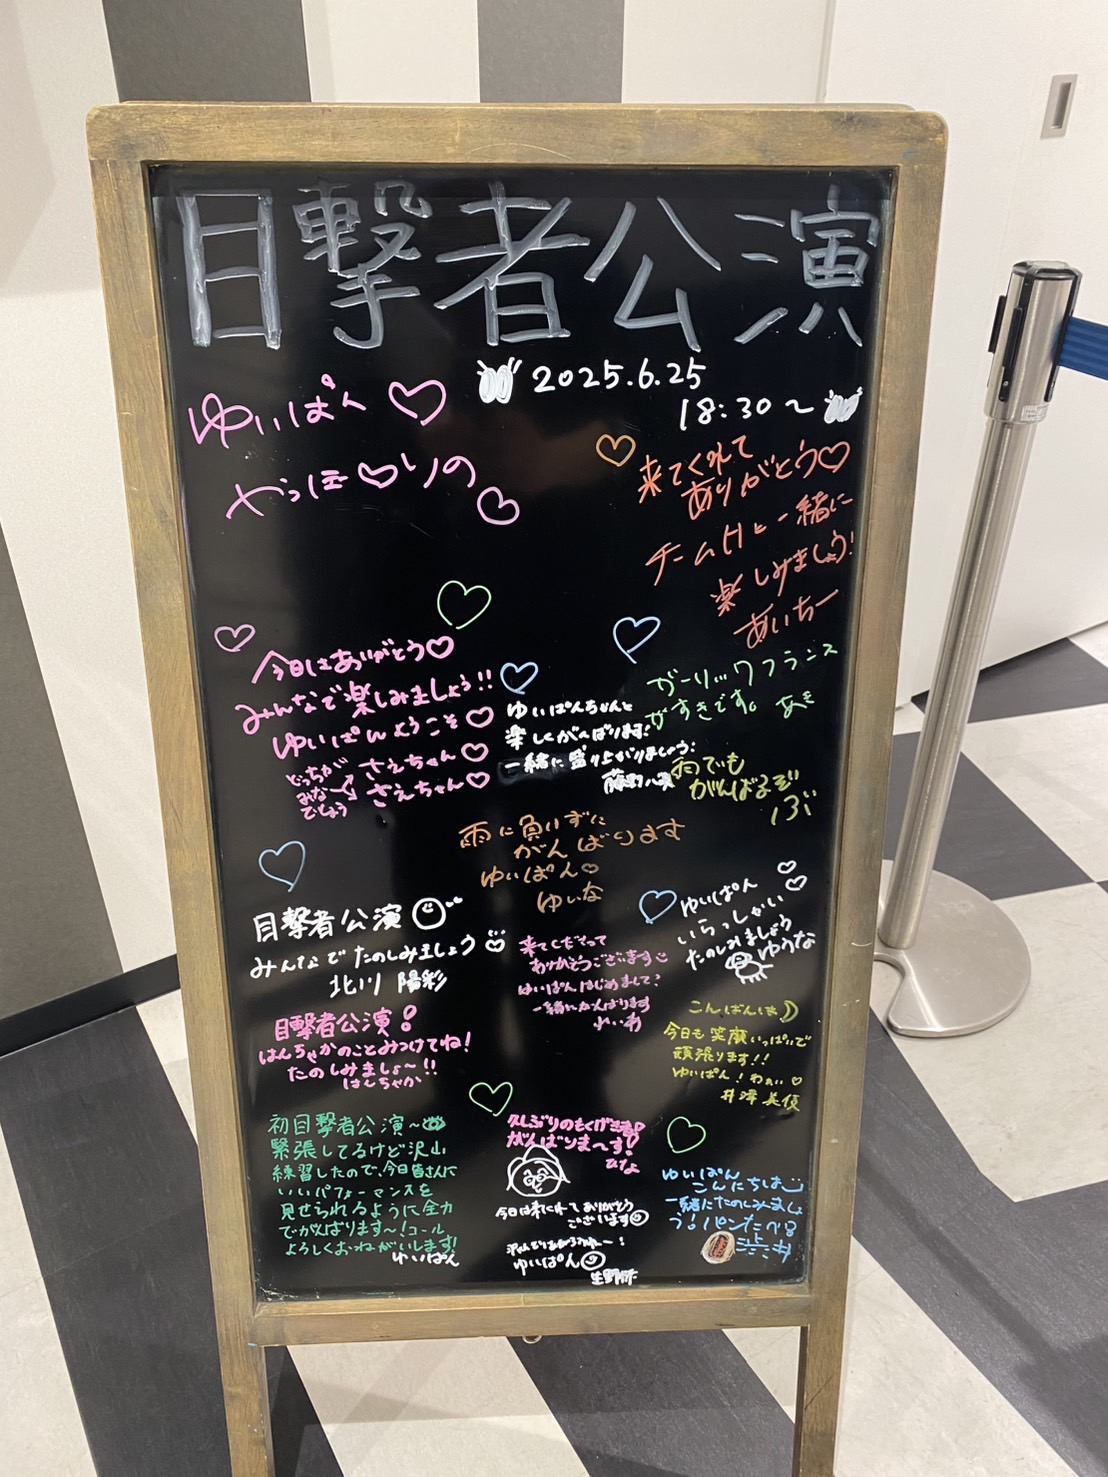 目撃者公演
2025.6.25
18:30〜
ゆいぱん♡
やっほ♡りの♡
来てくれて
ありがとう♡
チームHと一緒に
楽しみましょう!
あいちー
今日はありがとう♡
みんなで楽しみましょう!!
ゆいぱんようこそ♡
どっちが
みな
でしょう
さえちゃん♡
さえちゃん♡
ゆいぱんちゃんと
楽しくがんばります!
一緒に盛り上がりましょう!
ガーリックフランス
がすきです。 あき
雨でも
がんばるぞ
ぶ
雨に負けずに
がんばります
ゆいぱん♡
ゆいな
目撃者公演
みんなでたのしみましょう
北川 陽彩
ゆいぱん
いらっしゃい
たのしみましょう
ゆうな
来てくださって
ありがとうございます
ゆいぱんはじめまして!
一緒にがんばります
れいわ
目撃者公演!
はんちゃかのことみつけてね!
たのしみましょ〜!!
はんちゃか
こんばんは
今日も笑顔いっぱいで
頑張ります!!
ゆいぱん!わぁい♡
井澤美優
初目撃者公演〜
緊張してるけど沢山
練習したので、今日皆さんに
いいパフォーマンスを
見せられるように全力
でがんばります〜!コール
よろしくおねがいします!
ゆいぱん
久しぶりのもくげき
がんばりま〜す!
ひな
今日は来てくれてありがとう
ございます
ゆいぱん
ゆいぱん
こんにちは
一緒にたのしみましょ
う!パンたべる